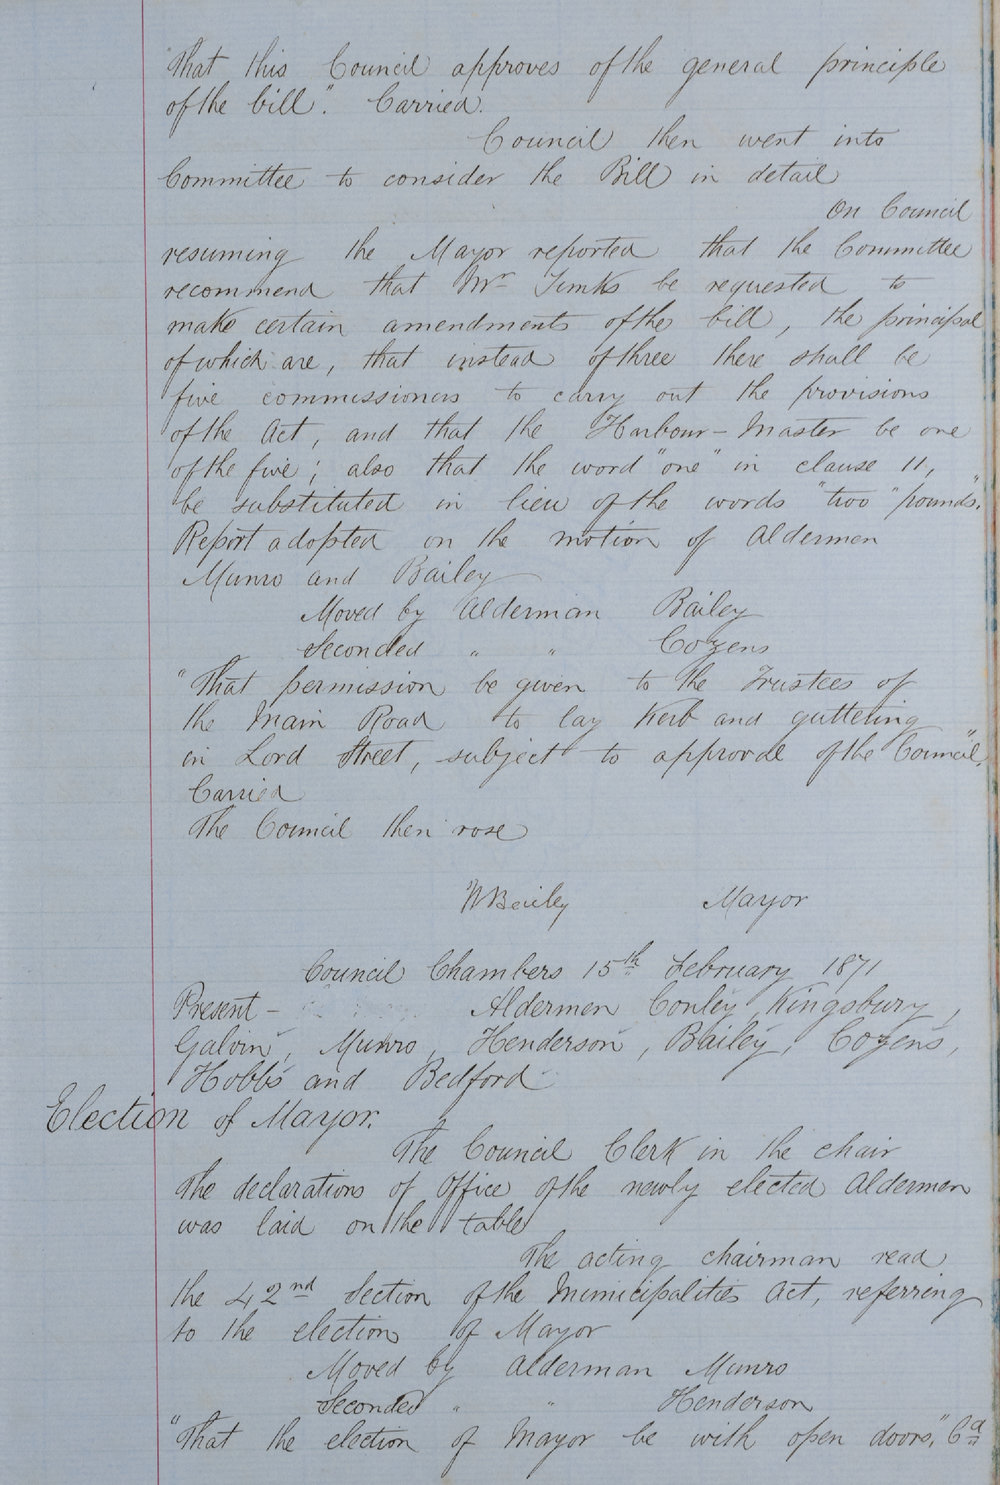 "That this Council approves of the general principle
of the bill". Carried.
Council then went into
Committee to consider the Bill in detail
On Council
resuming the Mayor reported that the Committee
recommend that Mr Timks be requested to
make certain amendments of the bill, the principal
of which are, that instead of three there shall be
five commissioners to carry out the provisions
of the Act, and that the Harbour-Master be one
of the five; also that the word "one" in clause 11,
be substituted in lieu of the words "two" pounds".
Report adopted on the motion of Aldermen
Munro and Bailey
Moved by Alderman Bailey
Seconded " " Cozens
"That permission be given to the Trustees of
the Main Road to lay Kerb and guttering
in Lord Street, subject to approval of the Council".
Carried
The Council then rose
W Bailey Mayor
Council Chambers 15th February 1871
Present - Aldermen Conley, Kingsbury,
Galvin, Munro, Henderson, Bailey, Cozens,
Hobbs and Bedford
Election of Mayor.
The Council Clerk in the chair
The declarations of Office of the newly elected Aldermen
was laid on the table
The acting chairman read
the 42nd Section of the Municipalities Act, referring
to the election of Mayor
Moved by Alderman Munro
Seconded " " Henderson
"That the election of Mayor be with open doors," Cd